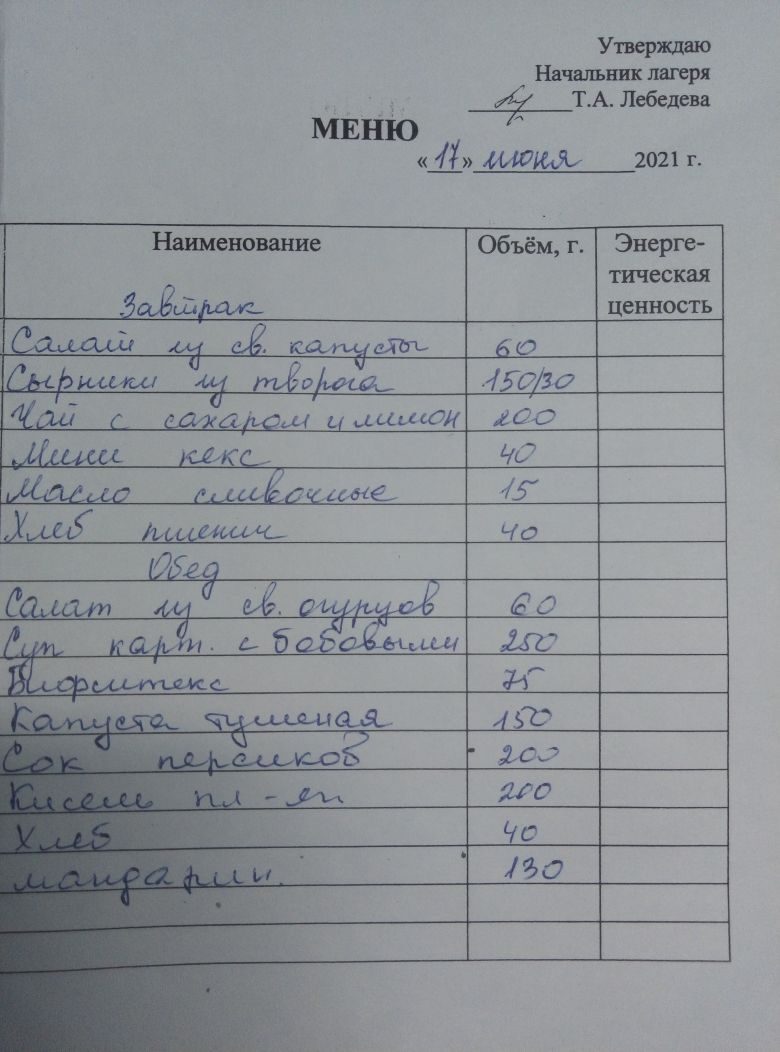 Утверждаю
Начальник лагеря
Т.А. Лебедева
МЕНЮ
«17» июня 2021 г.
Наименование Объём, г. Энерге-
тическая
ценность
Завтрак
Салат из св. капусты 60
Сырники из творога 150/30
Чай с сахаром и лимон 200
Мини кекс 40
Масло сливочные 15
Хлеб пшенич 40
Обед
Салат из св. огурцов 60
Суп карт. с бобовыми 250
Бифштекс 75
Капуста тушеная 150
Сок персиков 200
Кисель пл-яг 200
Хлеб 40
мандарин. 130